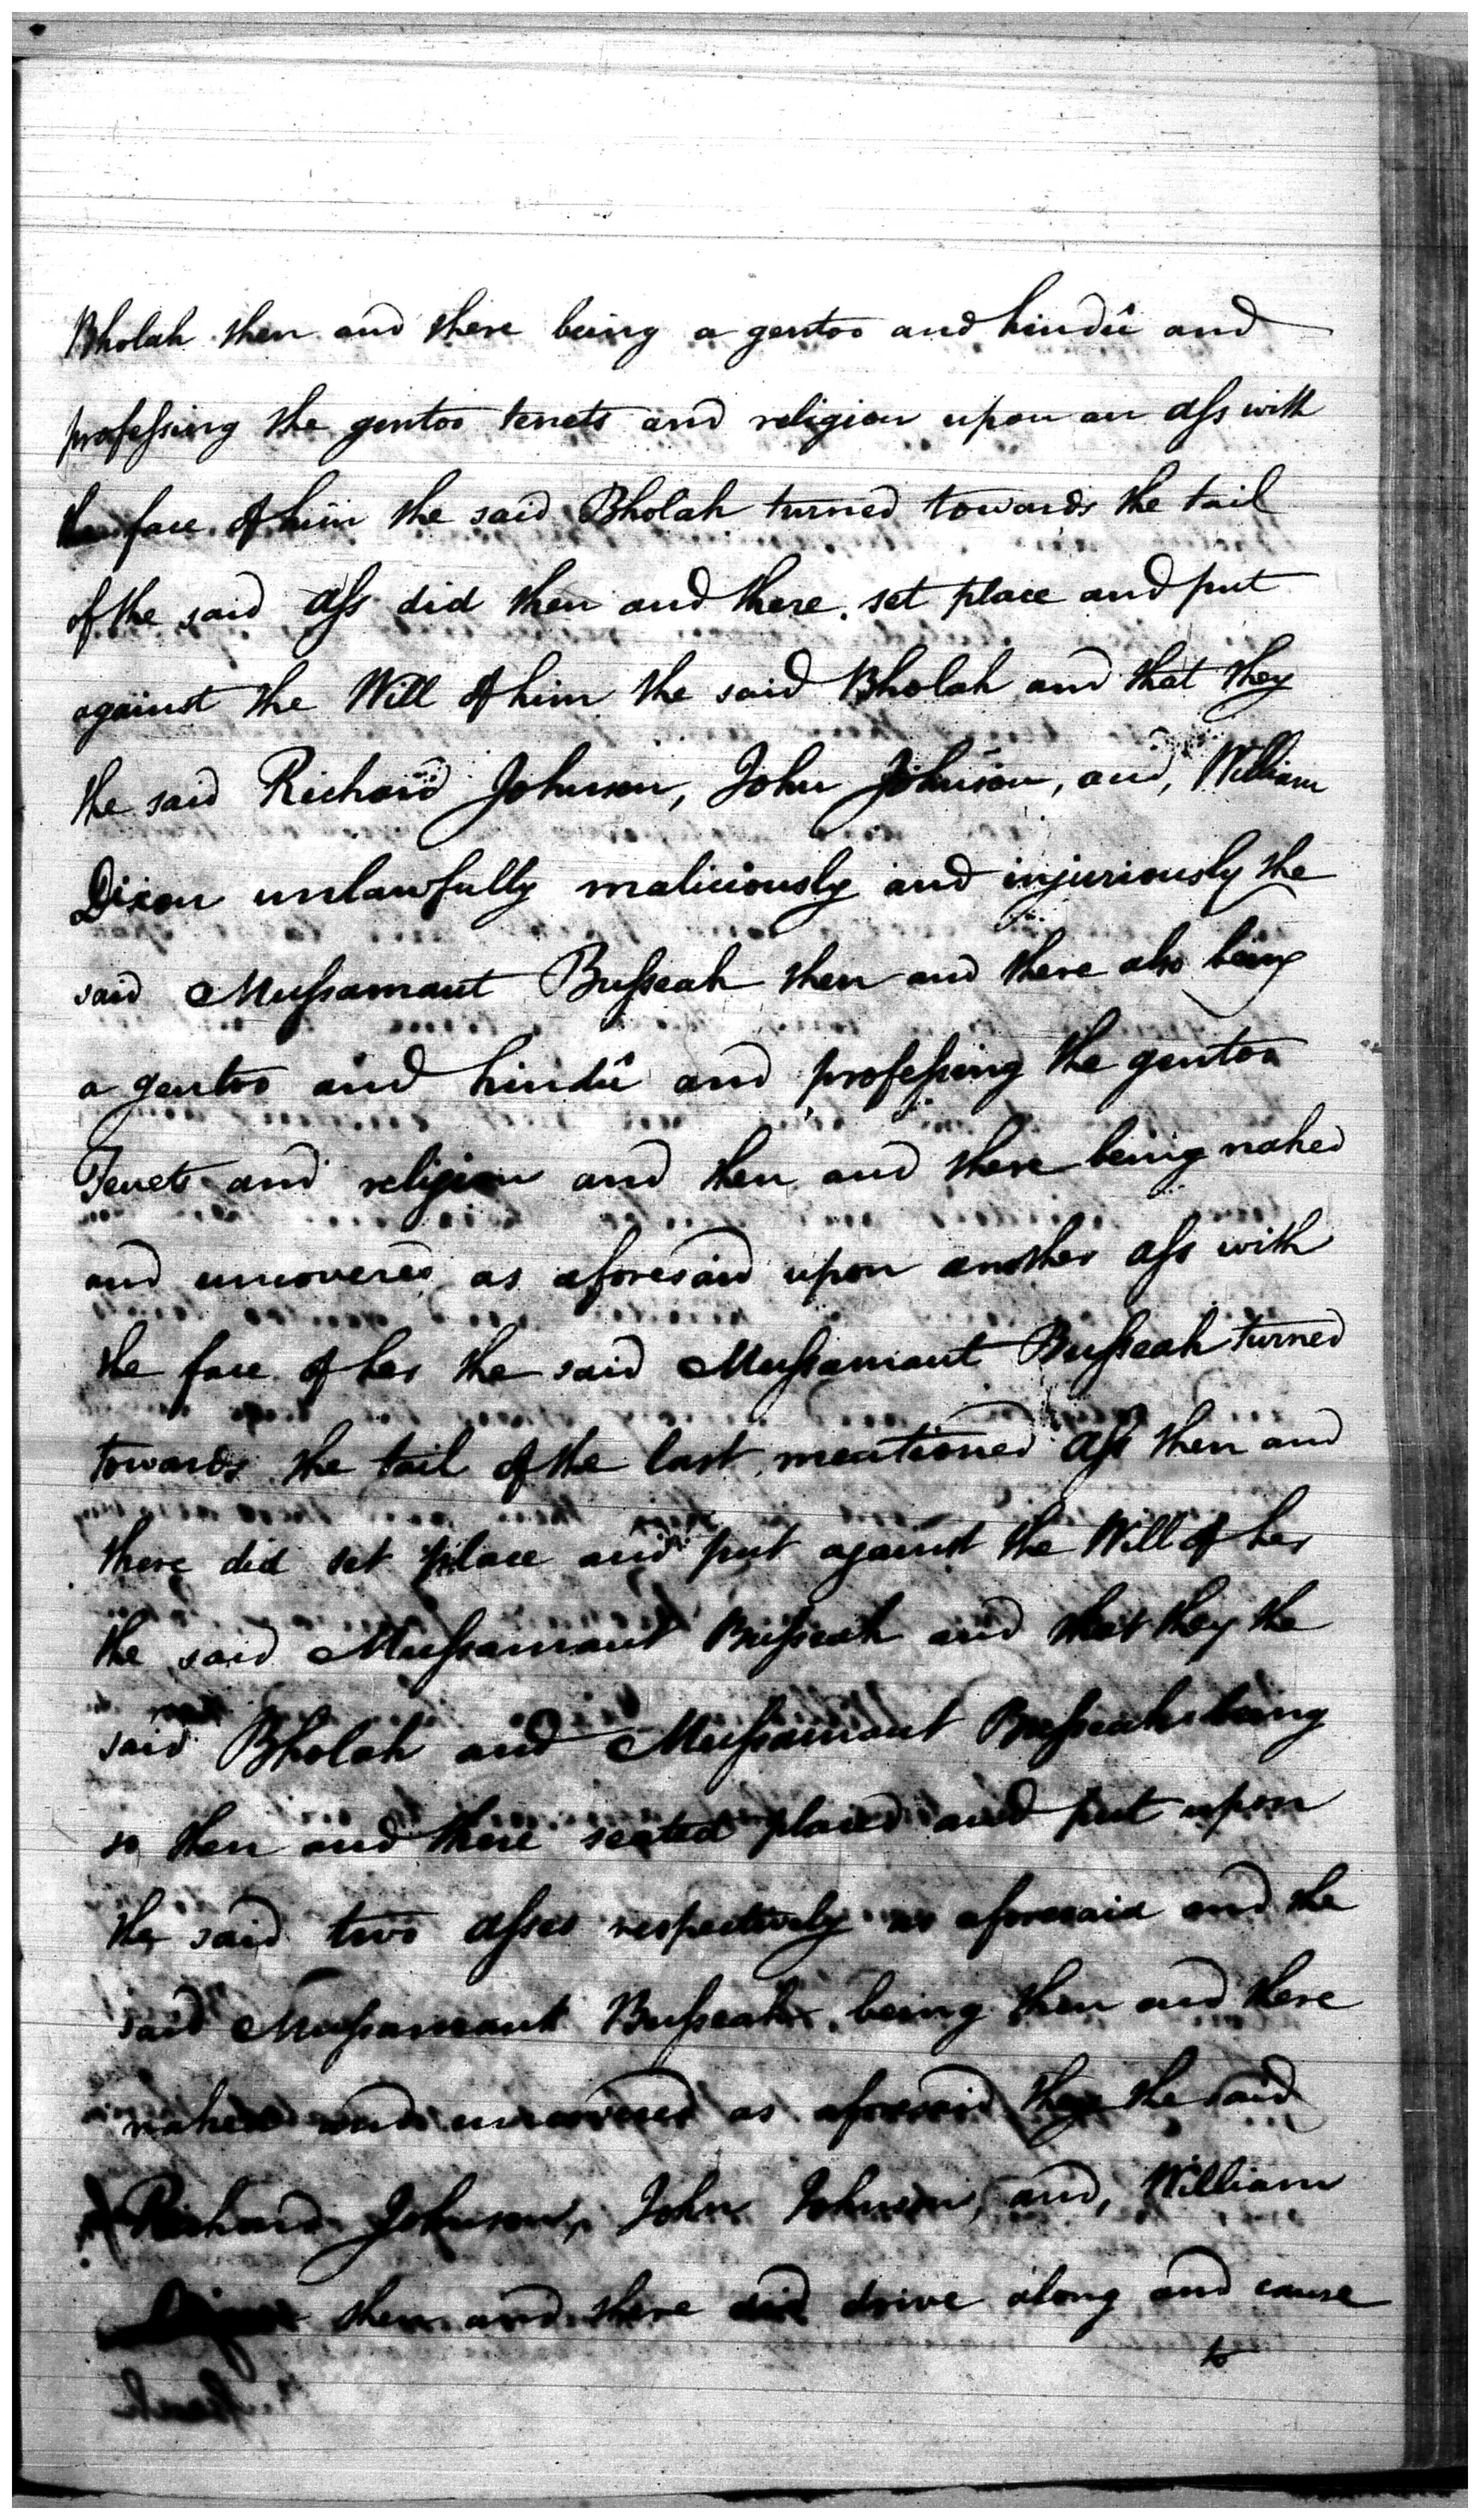 Bholah then and there being a gentoo and hindû and
professing the gentoo tenets and religion upon an ass with
the face of him the said Bholah turned towards the tail
of the said ass did then and there set place and put
against the Will of him the said Bholah and that they
the said Richard Johnson, John Johnson, and, William
Dixon unlawfully maliciously and injuriously the
said Mussamaut Busseah then and there also being
a gentoo and hindû and professing the gentoo
Tenets and religion and then and there being naked
and uncovered as aforesaid upon another ass with
the face of her the said Mussamaut Busseah turned
towards the tail of the last mentioned ass then and
there did set place and put against the Will of her
the said Mussamaut Busseah and that they the
said Bholah and Mussamaut Busseah being
so then and there seated placed and put upon
the said two asses respectively as aforesaid and the
said Mussamaut Busseah being then and there
naked and uncovered as aforesaid they the said
Richard Johnson, John Johnson, and, William
Dixon then and there did drive along and cause
to